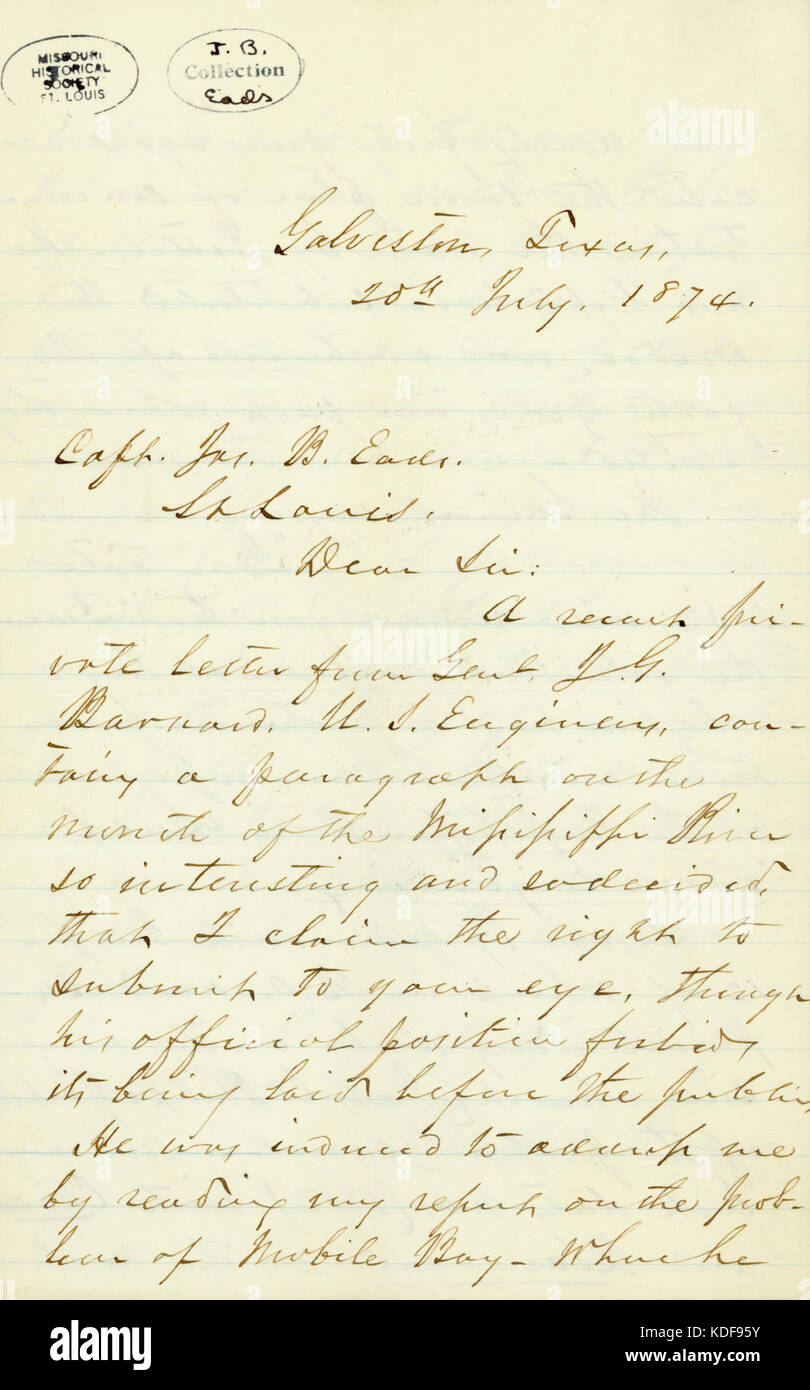 MISSOURI
HISTORICAL
SOCIETY
ST. LOUIS
J. B.
Collection
Eads
Galveston, Texas,
20th July. 1874.
Capt. Jas. B. Eads.
St Louis.
Dear Sir:
A recent pri-
vate letter from Genl. J. G.
Barnard. U. S. Engineers, con-
tains a paragraph on the
mouth of the Mississippi River
so interesting and so decided,
that I claim the right to
submit to your eye, though
his official position forbids
its being laid before the public,
He was induced to address me
by reading my report on the prob-
lem of Mobile Bay - Where he
alamy
alamy
alamy
alamy
a
a
a
a
alamy
Image ID: KDF95Y
www.alamy.com